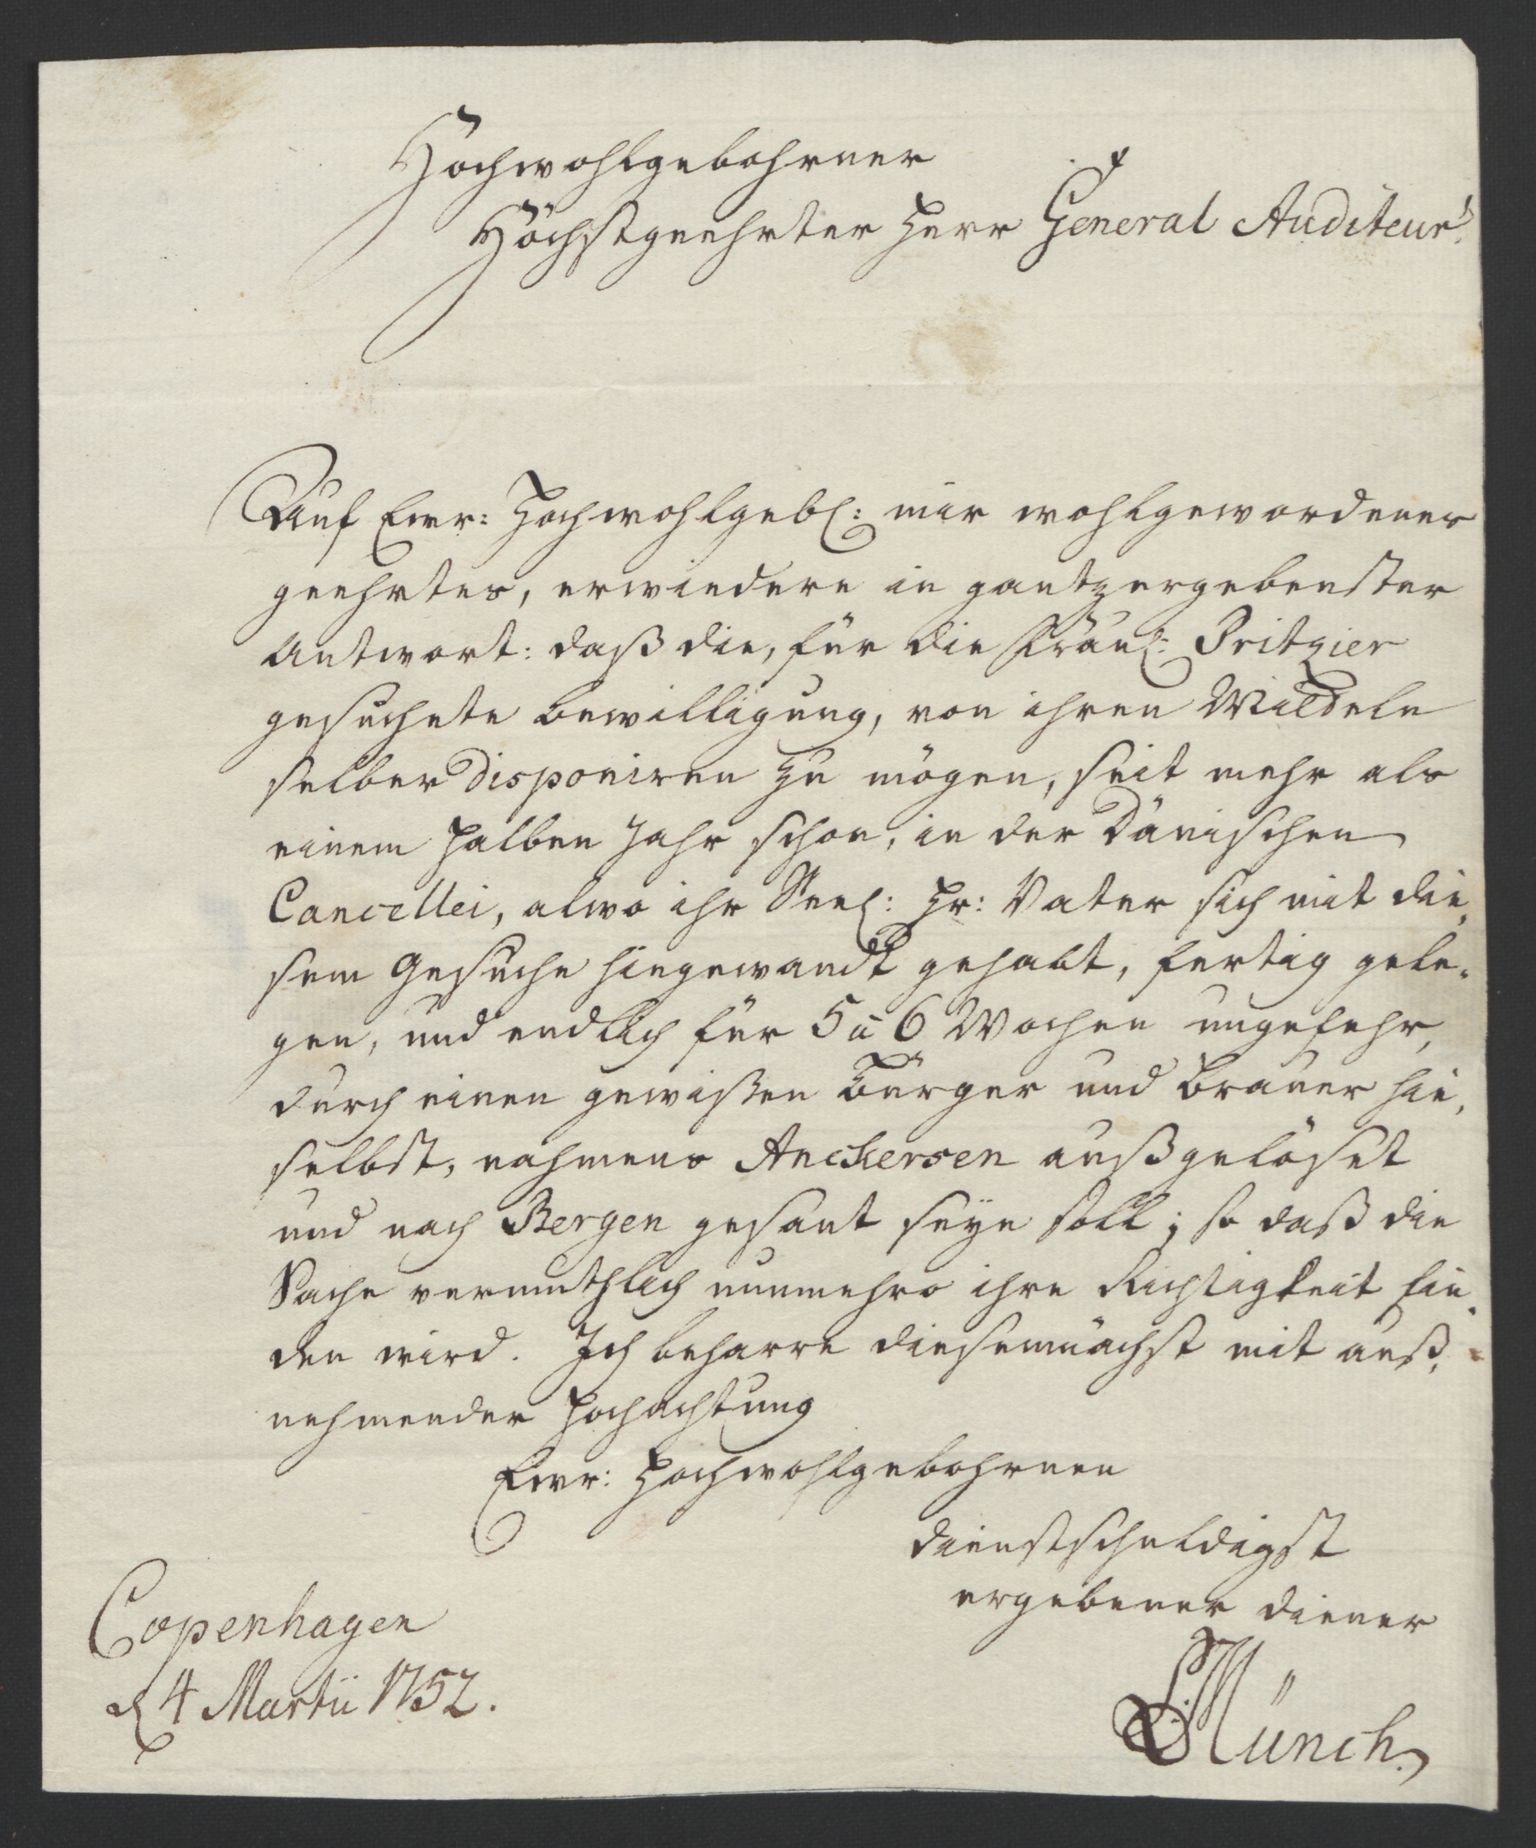 Hochwohlgebohrner
Höchstgeehrter Herr General Auditeur.
Auf Ewr: Hochwohlgebl: mir wohlgewordenes
geehrtes, erwiedere in gantzergebenster
Antwort: daß die, für die Fräul: Pritzier
gesuchete bewilligung, von ihren Mitteln
selber disponiren zu mögen, seit mehr als
einem halben Jahr schon, in der Dänischen
Cancellei, alwo ihr Seel: Hr: Vater sich mit die,
sem Gesuche hingewandt gehabt, fertig gele,
gen, und endlich für 5 à 6 Wochen ungefehr,
durch einen gewißen Bürger und Brauer hie,
selbst, nahmens Anckersen außgelöset
und nach Bergen gesant seyn soll; so daß die
Sache vermuthlich nunmehro ihre Richtigkeit fin,
den wird. Ich beharre diesemnächst mit auß,
nehmender Hochachtung
Ewr: Hochwohlgebohrnen
dienstschuldigst
ergebener diener
Münch.
Copenhagen
d 4 Martii 1752.